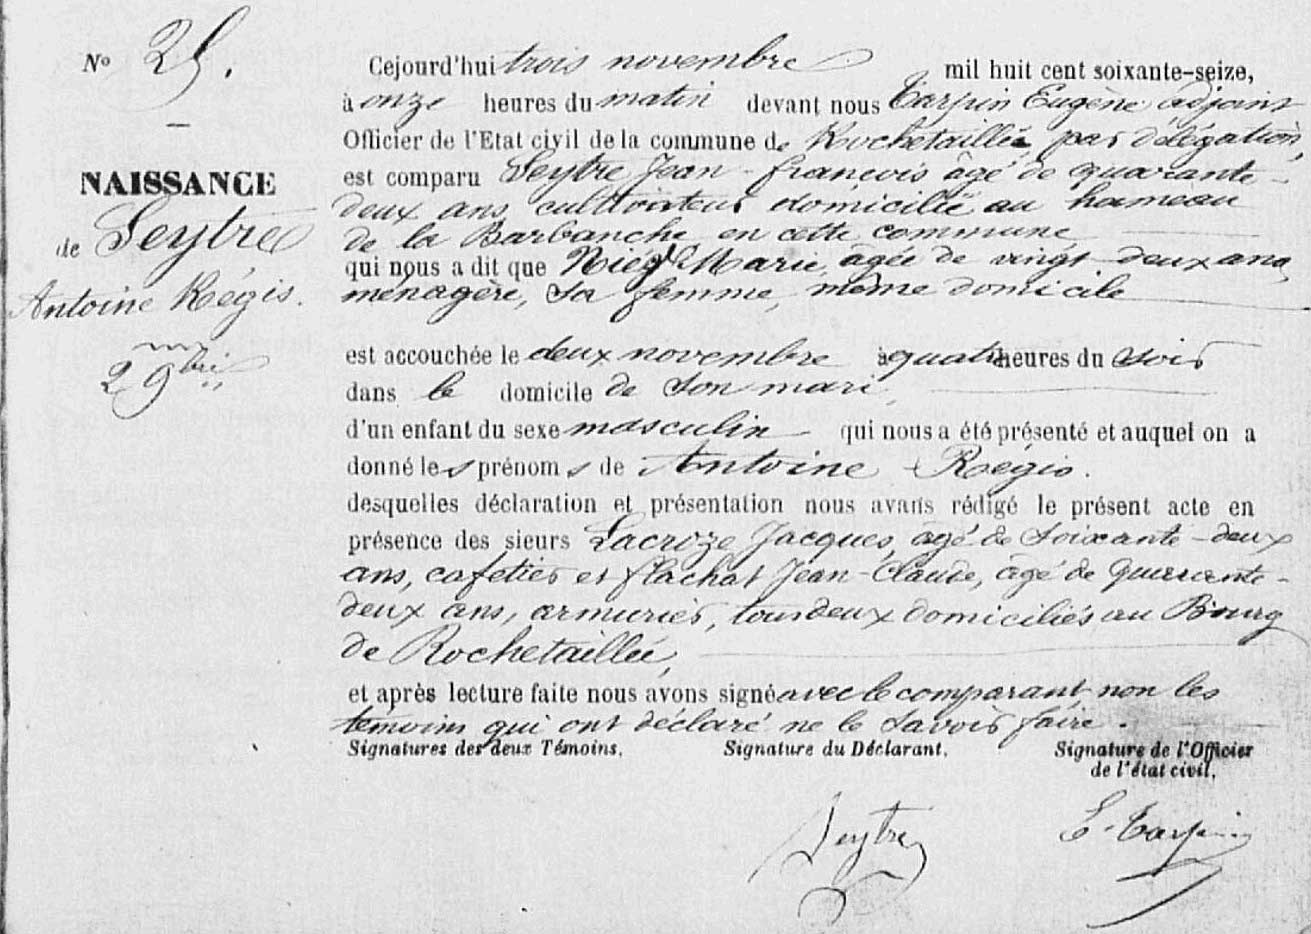 N° 25.
NAISSANCE
de Seytre
Antoine Régis.
2 9bre
Cejourd'hui trois novembre mil huit cent soixante-seize,
à onze heures du matin devant nous Tarpin Eugène adjoint
Officier de l'Etat civil de la commune de Rochetaillée par délégation,
est comparu Seytre Jean-François âgé de quarante-
deux ans, cultivateur domicilié au hameau
de la Barbanche en cette commune
qui nous a dit que Marie, agée de vingt-deux ans,
ménagère, sa femme, même domicile
est accouchée le deux novembre à quatre heures du soir
dans le domicile de son mari,
d'un enfant du sexe masculin qui nous a été présenté et auquel on a
donné les prénoms de Antoine-Régis.
desquelles déclaration et présentation nous avons rédigé le présent acte en
présence des sieurs Lacroze Jacques, âgé de soixante-deux
ans, cafetier et flachat Jean-Claude, âgé de quarante-
deux ans, armurier, tous deux domiciliés au Bourg
de Rochetaillée,
et après lecture faite nous avons signé avec le comparant non les
témoins qui ont déclaré ne le savoir faire.
Signatures des deux Témoins, Signature du Déclarant, Signature de l'Officier
de l'état civil,
Seytre E. Tarpin